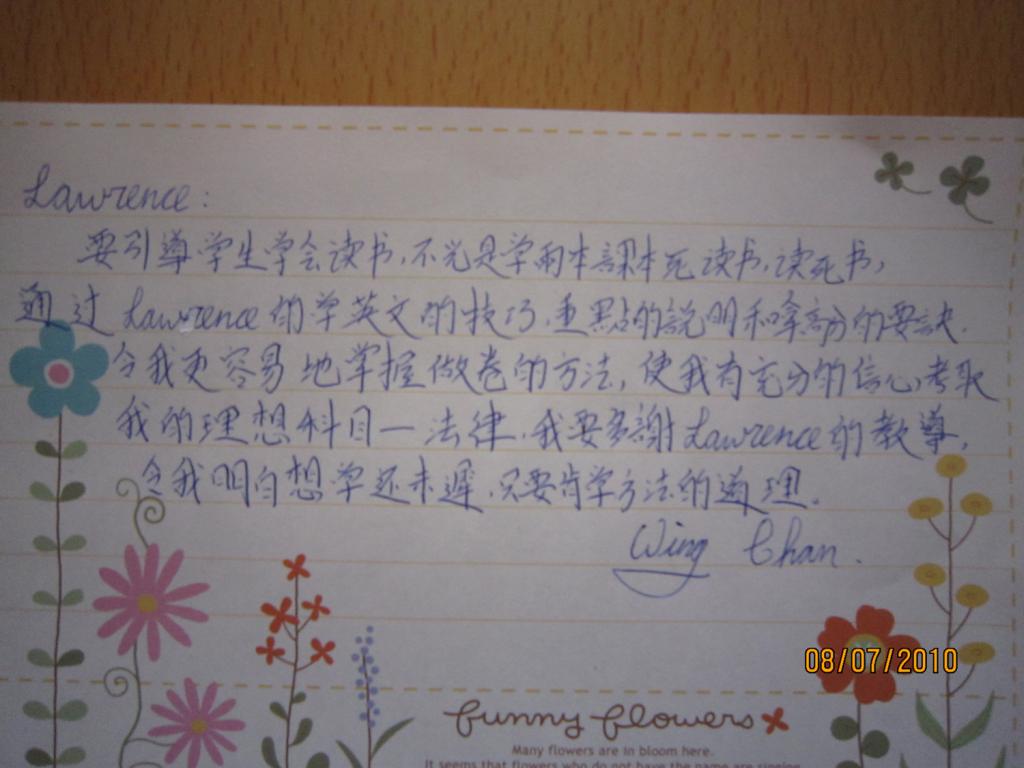 Lawrence:
要引導学生学会读书,不光是学兩本課本死读书,读死书,
通过Lawrence的学英文的技巧,重點的說明和拿高分的要訣.
令我更容易地掌握做卷的方法,使我有充分的信心考取
我的理想科目—法律.我要多謝Lawrence的教導,
令我明白想学还未遲,只要肯学方法的道理。
Wing Chan.
08/07/2010
funny flowers
Many flowers are in bloom here.
It seems that flowers who do not have the name are singing